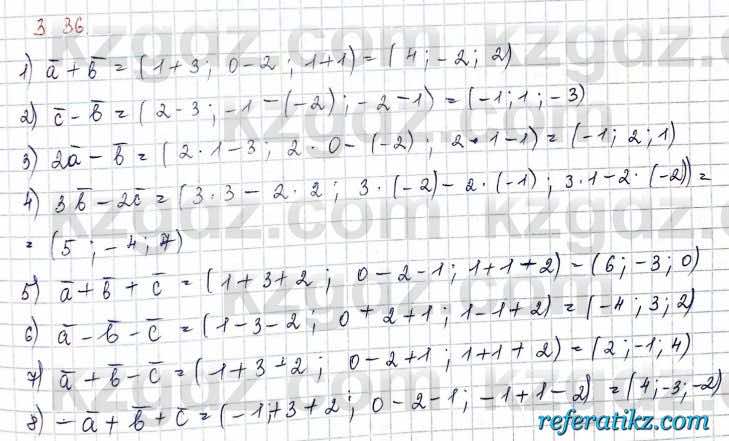 3 36
1) a̅ + b̅ = (1+3; 0-2; 1+1) = (4; -2; 2)
2) c̅ - b̅ = (2-3; -1-(-2); -2-1) = (-1; 1; -3)
3) 2a̅ - b̅ = (2·1-3; 2·0-(-2); 2·1-1) = (-1; 2; 1)
4) 3b̅ - 2c̅ = (3·3-2·2; 3·(-2)-2·(-1); 3·1-2·(-2)) =
= (5; -4; 7)
5) a̅ + b̅ + c̅ = (1+3+2; 0-2-1; 1+1+2) = (6; -3; 0)
6) a̅ - b̅ - c̅ = (1-3-2; 0+2+1; 1-1+2) = (-4; 3; 2)
7) a̅ + b̅ - c̅ = (1+3+2; 0-2+1; 1+1+2) = (2; -1; 4)
8) -a̅ + b̅ + c̅ = (-1+3+2; 0-2-1; -1+1-2) = (4; -3; -2)
referatikz.com